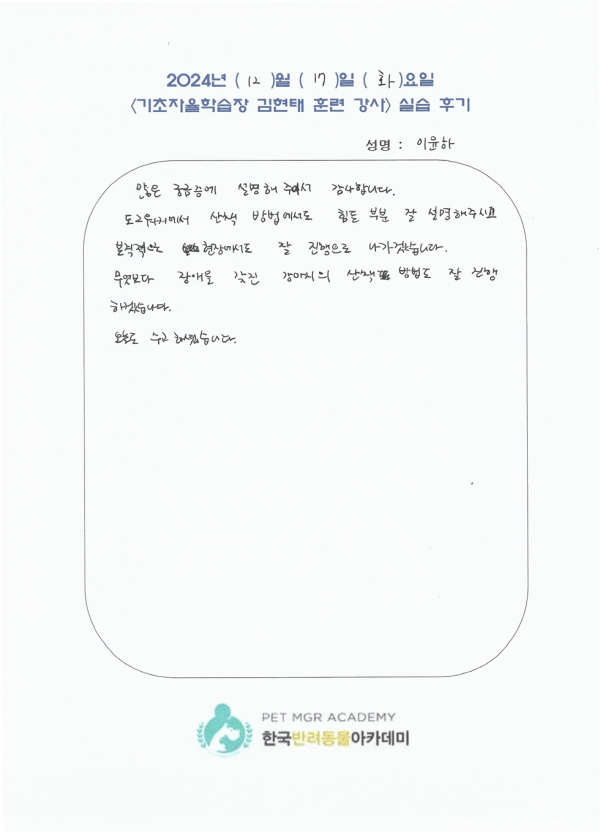 2024년 ( 12 )월 ( 17 )일 ( 화 )요일
<기초자율학습장 김현태 훈련 강사> 실습 후기
성명 : 이윤하
많은 궁금증에 설명해 주셔서 감사합니다.
도그워커에서 산책 방법에서도 힘든 부분 잘 설명해주시고
본격적으로 현장에서도 잘 진행으로 나가겠습니다.
무엇보다 장애를 갖진 강아지의 산책 방법도 잘 진행
하겠습니다.
오늘도 수고하셨습니다.
PET MGR ACADEMY
한국반려동물아카데미